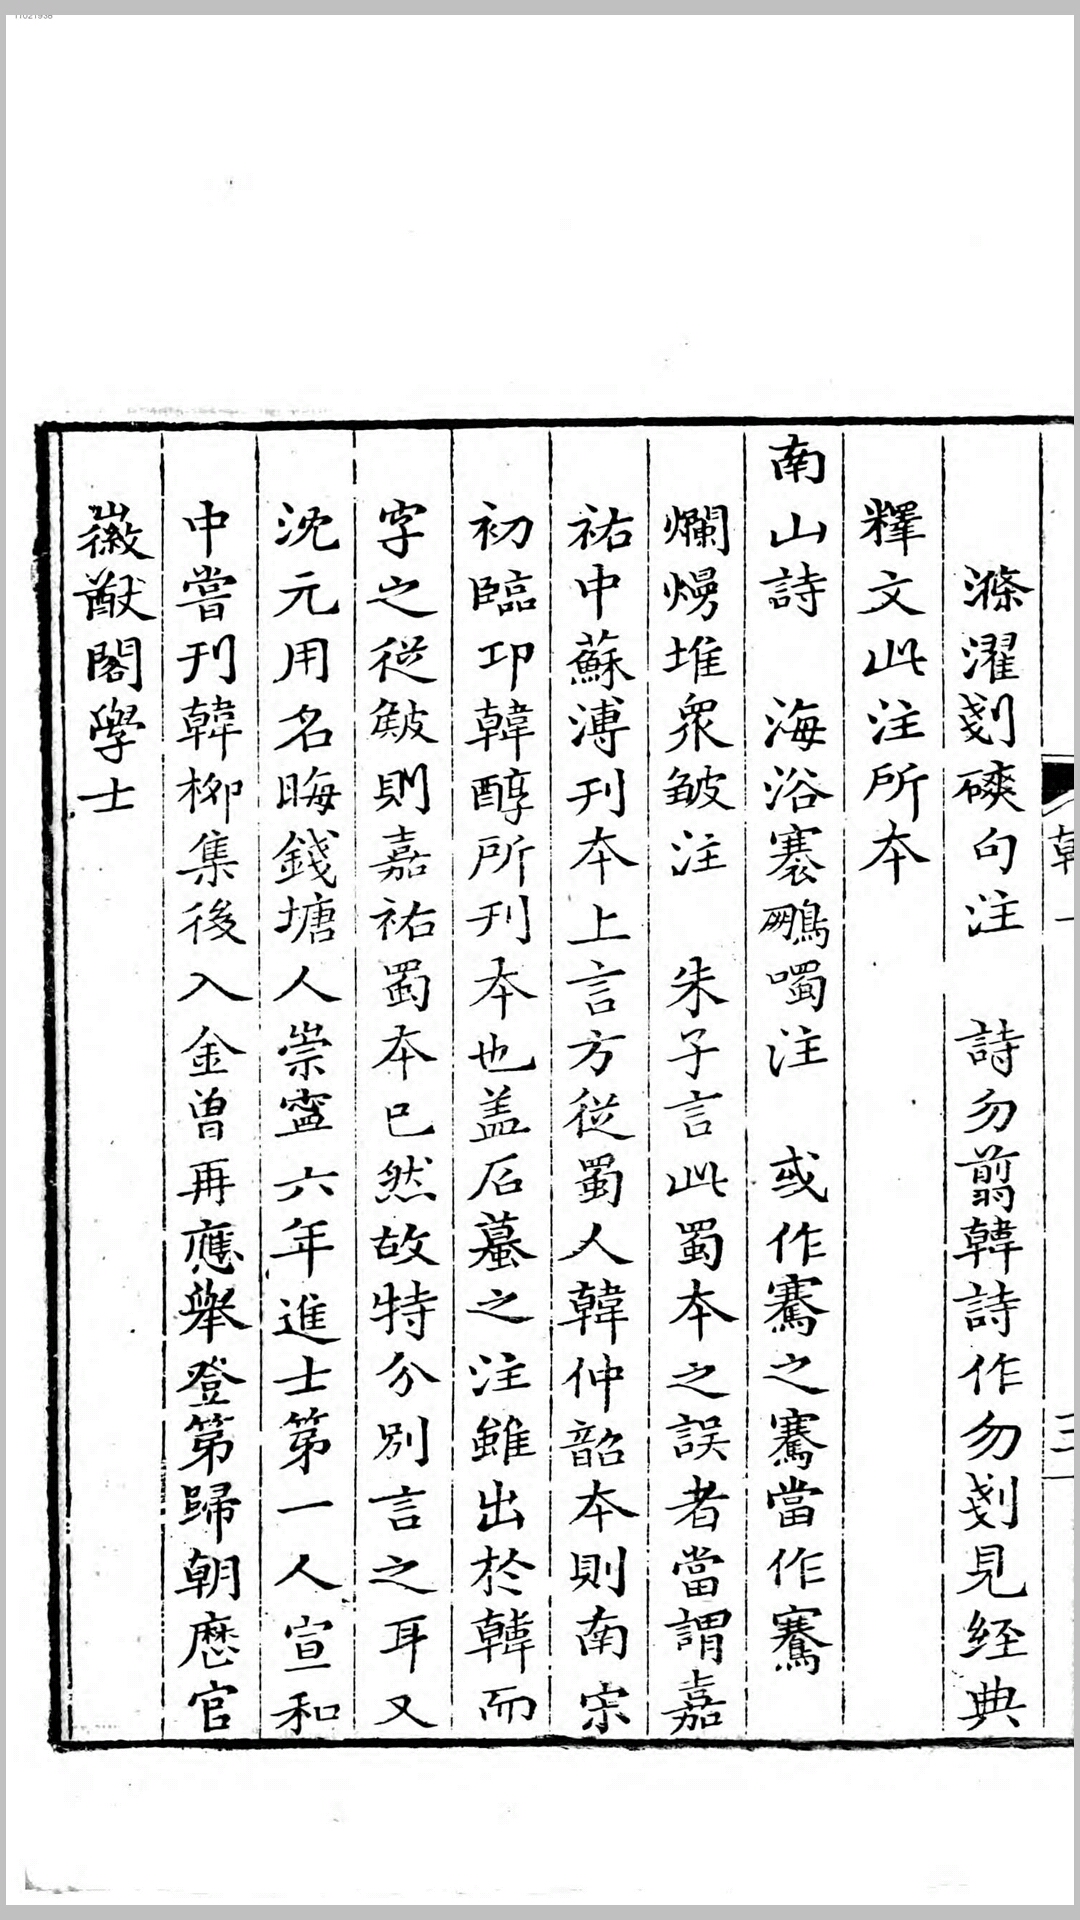 滌濯剗磢句注　詩勿翦韓詩作勿剗見經典
釋文此注所本
南山詩　海浴褰鵬噣注　或作騫之騫當作鶱
爛熳堆衆皴注　朱子言此蜀本之誤者當謂嘉
祐中蘇溥刊本上言方從蜀人韓仲韶本則南宋
初臨邛韓醇所刊本也盖后蟇之注雖出於韓而
字之從皴則嘉祐蜀本已然故特分别言之耳又
沈元用名晦錢塘人崇寧六年進士第一人宣和
中嘗刊韓柳集後入金曾再應舉登第歸朝歷官
徽猷閣學士